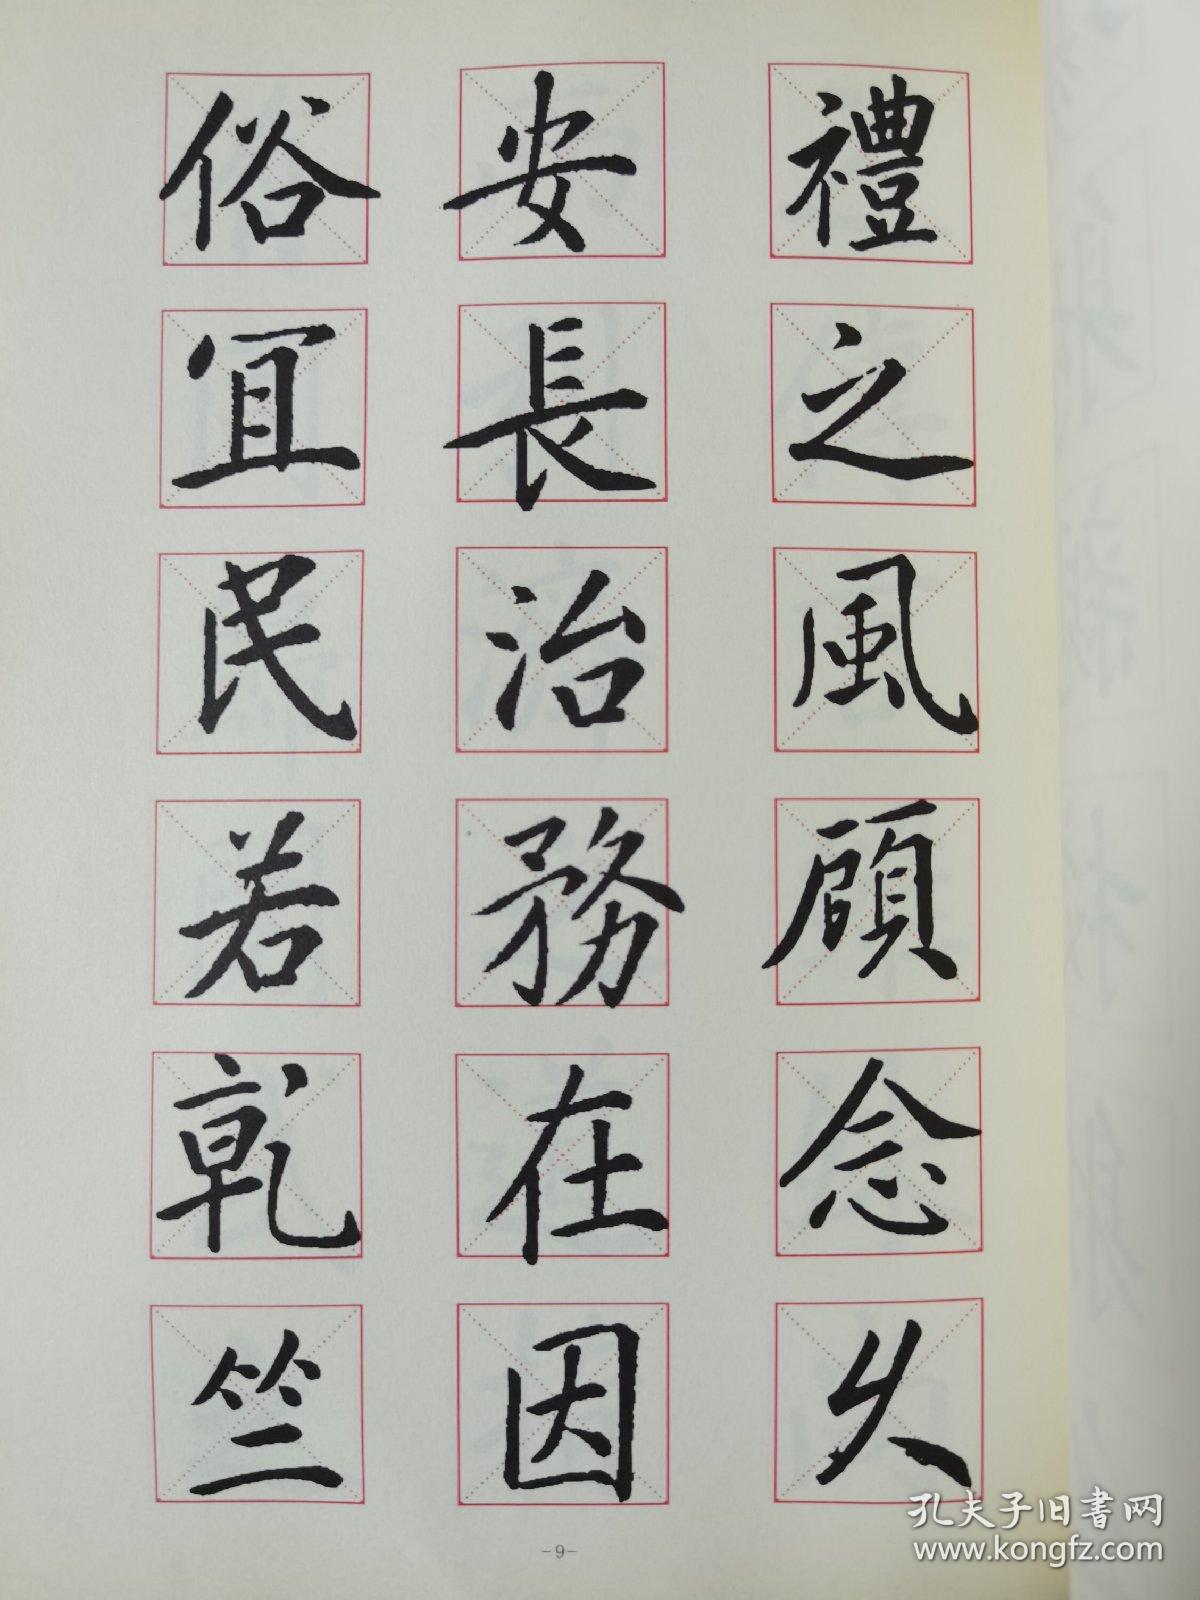 禮之風顧念久
安長治務在因
俗宜民若乾竺
-9-
孔夫子旧書网
www.kongfz.com